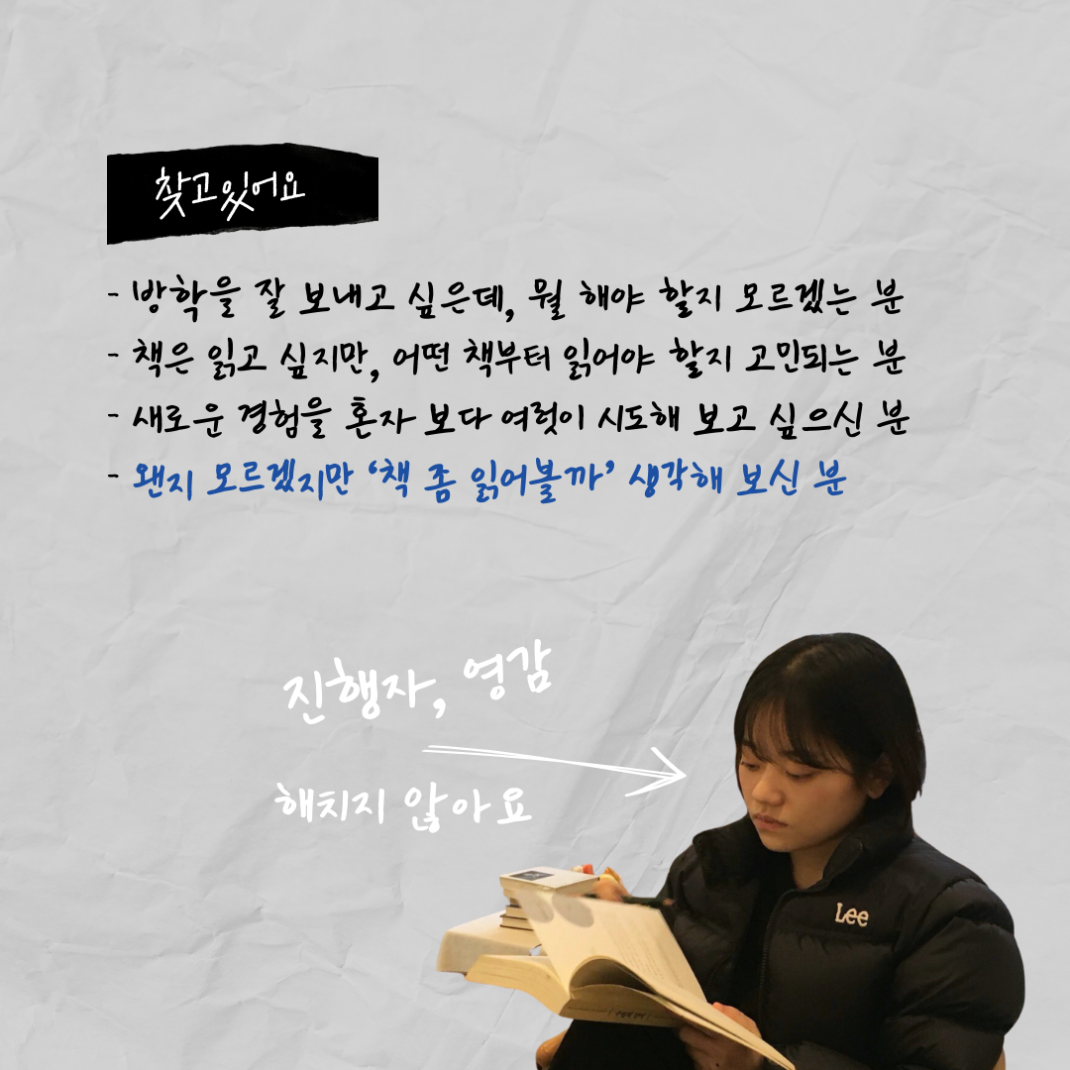 찾고있어요
- 방학을 잘 보내고 싶은데, 뭘 해야 할지 모르겠는 분
- 책은 읽고 싶지만, 어떤 책부터 읽어야 할지 고민되는 분
- 새로운 경험을 혼자 보다 여럿이 시도해 보고 싶으신 분
- 왠지 모르겠지만 ‘책 좀 읽어볼까’ 생각해 보신 분
진행자, 영감
해치지 않아요
Lee